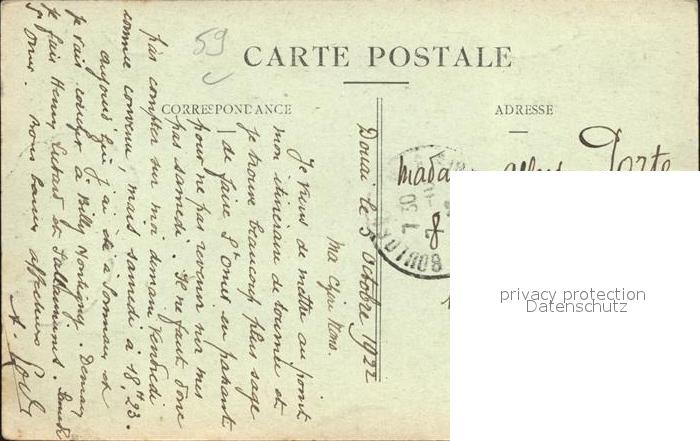 59
CARTE POSTALE
CORRESPONDANCE
ADRESSE
Douai le 5 Octobre 1922
Ma
Je viens de mettre au point
mon itinéraire de tournée et
je trouve beaucoup plus sage
de faire St Omer en partant
pour ne pas revenir sur mes
pas samedi. Il ne faut donc
pas compter sur moi demain Vendredi
comme convenu, mais samedi à 18h23.
aujourd'hui j'ai été à Somain et
je vais coucher à Billy Montigny. Demain
je fais Henin Lietard et
St Omer. Bons baisers affectueux
A.
Madame Porte
8
privacy protection
Datenschutz